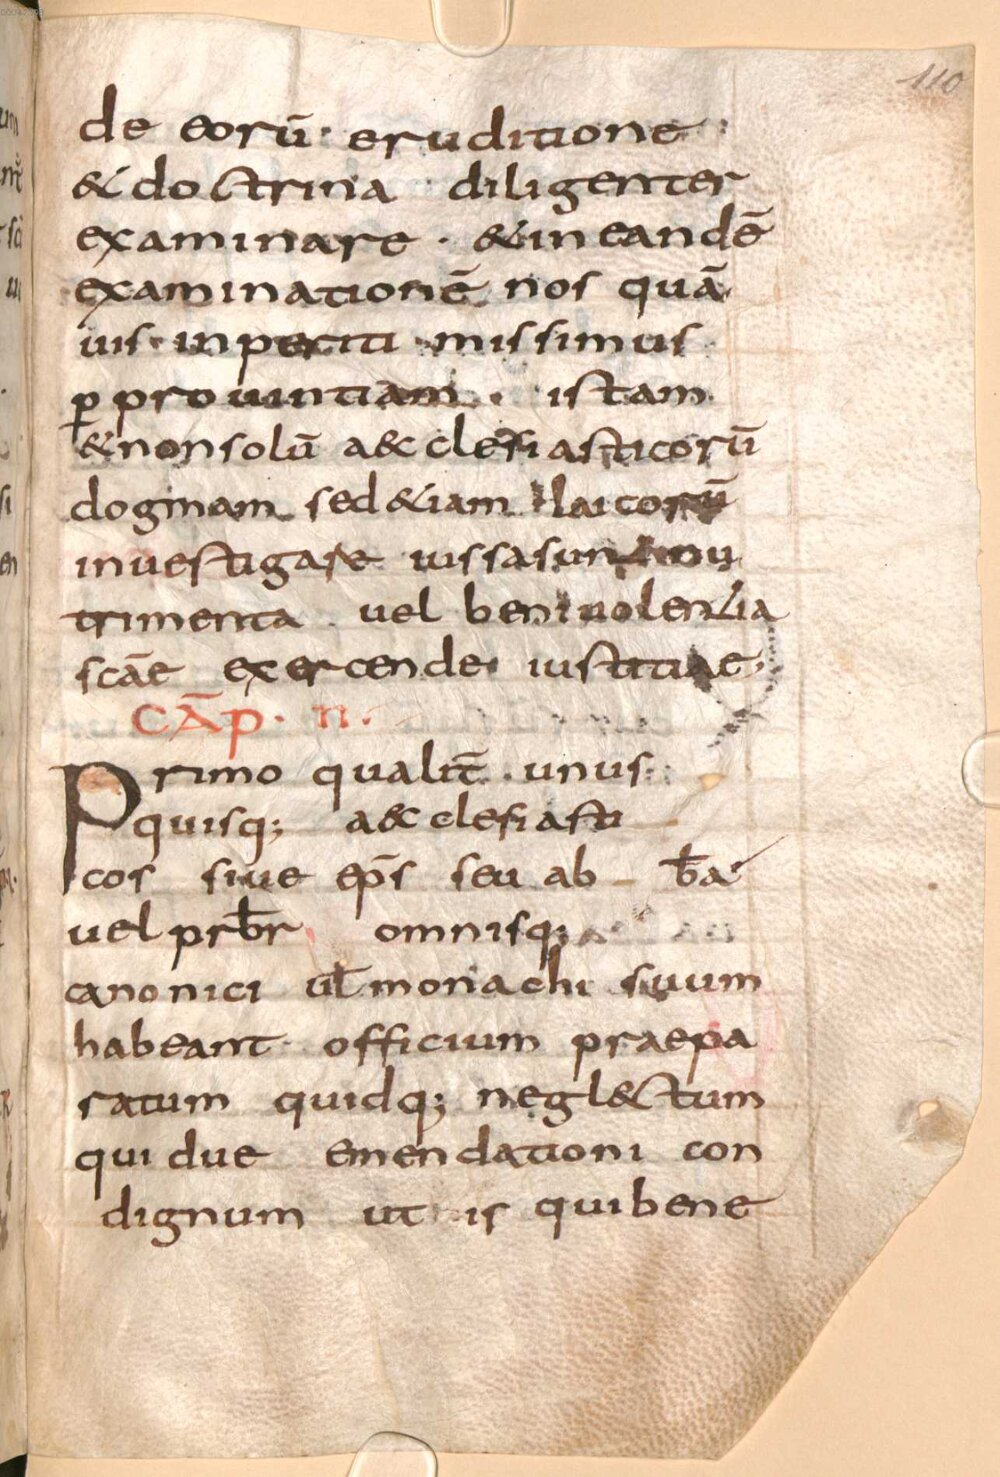 110
de eorū· eruditione
& doctrina diligenter
examinare · & in eandē
examinationē nos quā
uis inperiti missimus
ꝑ prouintiam · istam
& non solū a&clesiasticorū
dogmam sed &iam laicorū
inuestigare iussa sunt
trimenta uel beniuolentia
scāe exercende iustitiae
CĀP· II·
Primo qualit̄ · unus
quisq; a&clesiasti
cos siue ep̄s seu ab b̄a
uel prb̄r omnisq;
canonici ul̄ monachi suum
habeant officium praepa
ratum quidq; negl&ctum
qui due emendationi con
dignum ut is qui bene